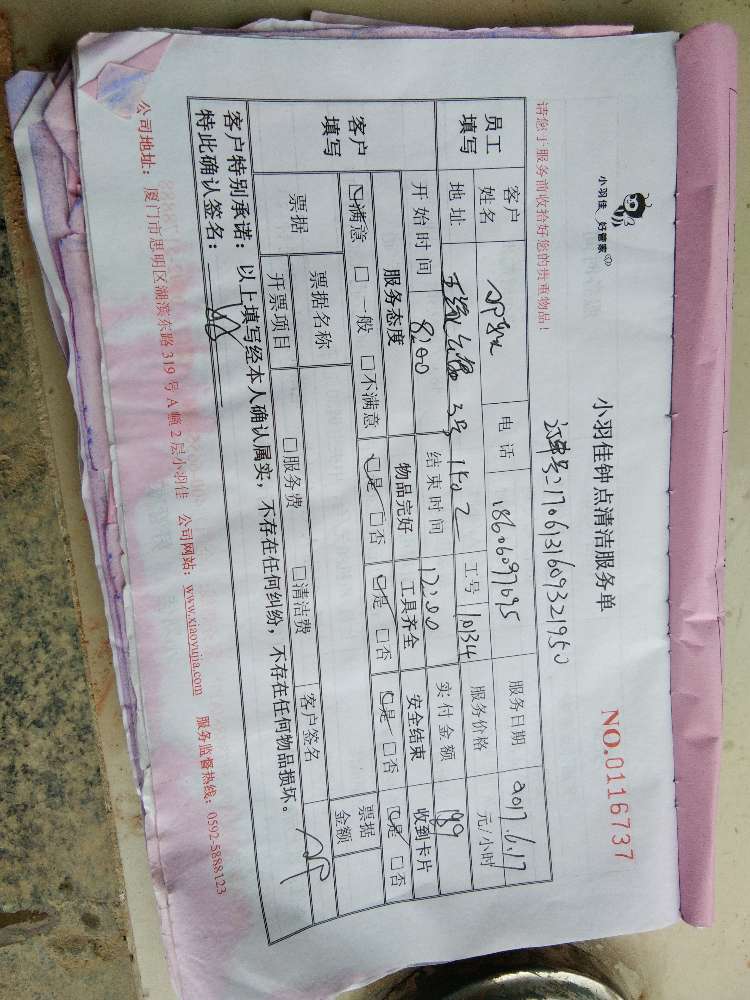 小羽佳 好管家
小羽佳钟点清洁服务单
NO.0116737
订单号:1706131609321950
请您于服务前收拾好您的贵重物品!
员工填写 客户姓名 电话 18606097095 服务日期 2017.6.17
地址 3号1502 工号 1034 服务价格 元/小时
开始时间 8:00 结束时间 12:00 实付金额 189
客户填写 服务态度 物品完好 工具齐全 安全结束 收到卡片
☑满意 □一般 □不满意 ☑是 □否 ☑是 □否 ☑是 □否 ☑是 □否
票据 票据名称 票据金额
开票项目 □服务费 □清洁费 客户签名
客户特别承诺:以上填写经本人确认属实,不存在任何纠纷,不存在任何物品损坏。
特此确认签名:
公司地址:厦门市思明区湖滨东路319号A幢2层小羽佳 公司网站:www.xiaoyujia.com 服务监督热线:0592-5888123